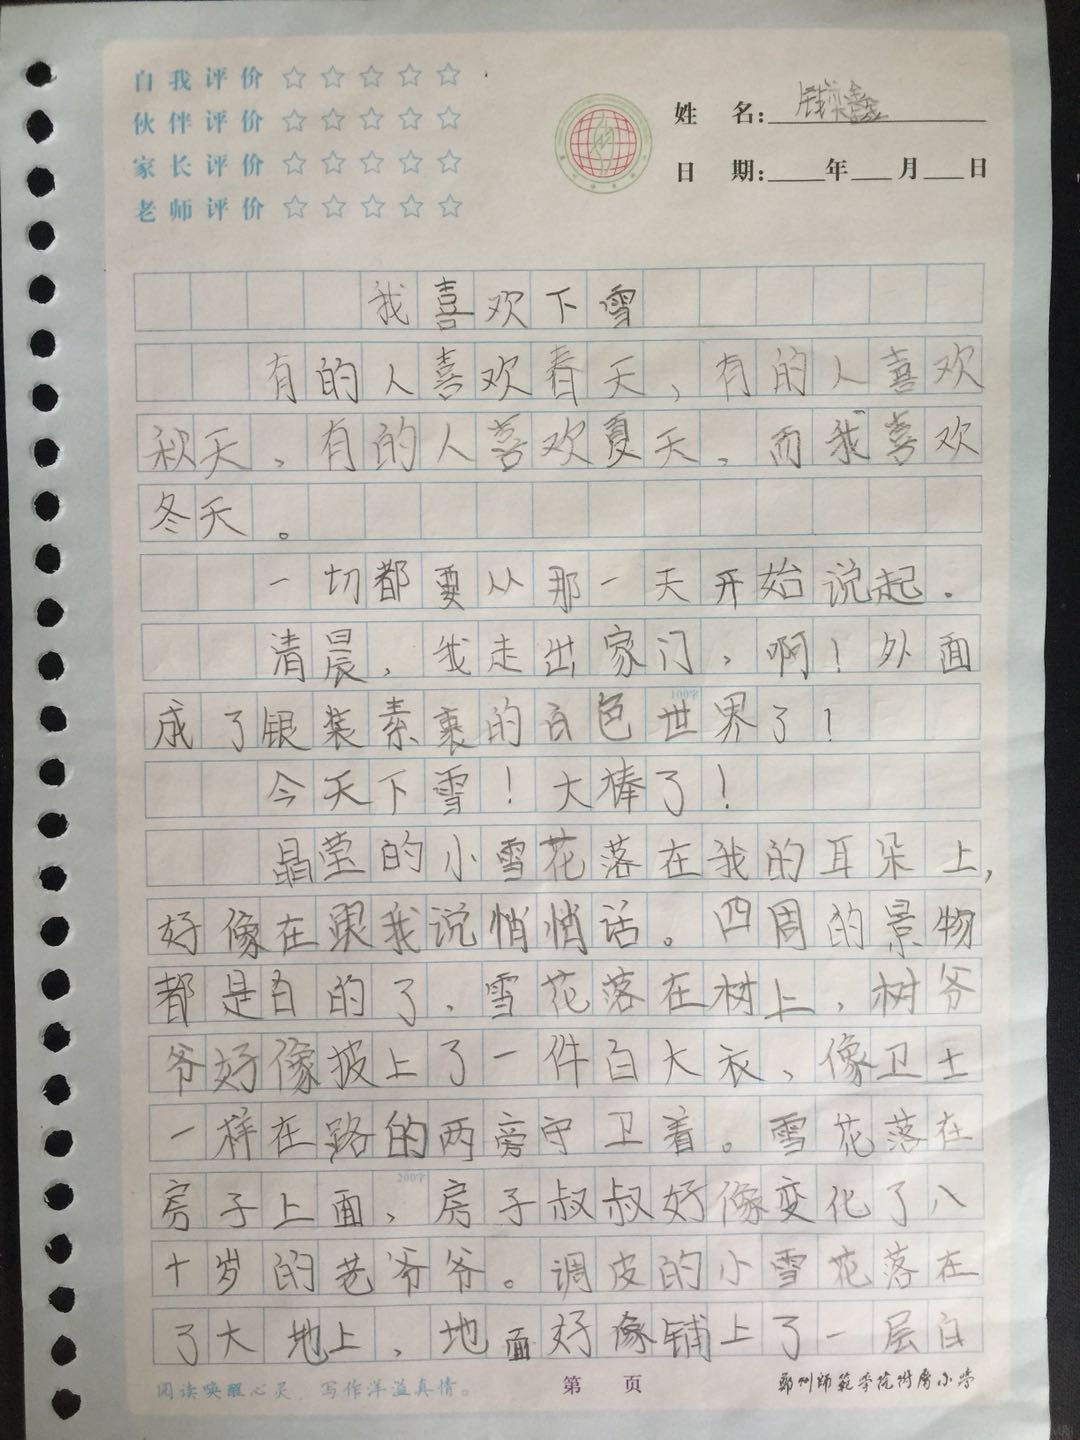 自我评价 ☆ ☆ ☆ ☆ ☆
伙伴评价 ☆ ☆ ☆ ☆ ☆
家长评价 ☆ ☆ ☆ ☆ ☆
老师评价 ☆ ☆ ☆ ☆ ☆
姓 名:
日 期:____年___月___日
我喜欢下雪
有的人喜欢春天,有的人喜欢
秋天,有的人喜欢夏天,而我喜欢
冬天。
一切都要从那一天开始说起.
清晨,我走出家门,啊!外面
成了银装素裹的白色世界了!
100字
今天下雪!大棒了!
晶莹的小雪花落在我的耳朵上,
好像在跟我说悄悄话。四周的景物
都是白的了,雪花落在树上,树爷
爷好像披上了一件白大衣、像卫士
一样在路的两旁守卫着。雪花落在
200字
房子上面,房子叔叔好像变化了八
十岁的老爷爷。调皮的小雪花落在
了大地上,地面好像铺上了一层白
阅读唤醒心灵 写作洋溢真情。
第 页
郑州师范学院附属小学